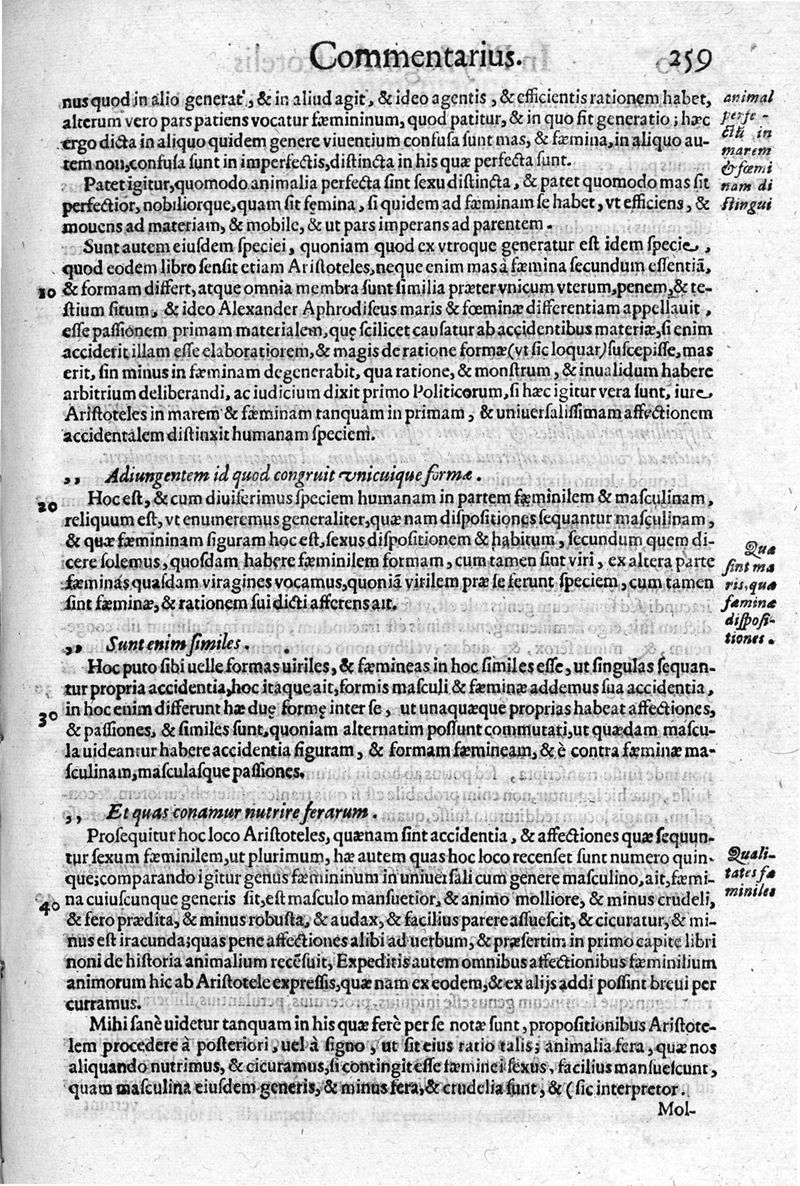 Commentarius. 259
nus quod in alio generat, & in aliud agit, & ideo agentis, & efficientis rationem habet,
alterum vero pars patiens vocatur fæmininum, quod patitur, & in quo fit generatio; hæc
ergo dicta in aliquo quidem genere viuentium confusa sunt mas, & fæmina, in aliquo au-
tem non, confusa sunt in imperfectis, distincta in his quæ perfecta sunt.
animal
perfe-
ctū in
marem
& fœmi
nam di
stingui
Patet igitur, quomodo animalia perfecta sint sexu distincta, & patet quomodo mas sit
perfectior, nobiliorque, quam sit femina, si quidem ad fæminam se habet, vt efficiens, &
mouens ad materiam, & mobile, & ut pars imperans ad parentem.
Sunt autem eiusdem speciei, quoniam quod ex vtroque generatur est idem specie,
quod eodem libro sensit etiam Aristoteles, neque enim mas à fæmina secundum essentiã,
10 & formam differt, atque omnia membra sunt similia præter vnicum vterum, penem, & te-
stium situm, & ideo Alexander Aphrodiseus maris & fœminæ differentiam appellauit,
esse passionem primam materialem, quę scilicet causatur ab accidentibus materiæ, si enim
acciderit illam esse elaboratiorem, & magis de ratione formæ (vt sic loquar) suscepisse, mas
erit, sin minus in fæminam degenerabit, qua ratione, & monstrum, & inualidum habere
arbitrium deliberandi, ac iudicium dixit primo Politicorum, si hæc igitur vera sunt, iure
Aristoteles in marem & fæminam tanquam in primam, & uniuersalissimam affectionem
accidentalem distinxit humanam speciem.
,, Adiungentem id quod congruit vnicuique formæ.
20 Hoc est, & cum diuiserimus speciem humanam in partem fæminilem & masculinam,
reliquum est, vt enumeremus generaliter, quæ nam dispositiones sequantur masculinam,
& quæ fæmininam figuram hoc est, sexus dispositionem & habitum, secundum quem di-
cere solemus, quosdam habere fæminilem formam, cum tamen sint viri, ex altera parte
fæminas quasdam viragines vocamus, quoniã virilem præ se ferunt speciem, cum tamen
sint fæminæ, & rationem sui dicti afferens ait.
Quæ
sint ma
ris, quæ
fæminæ
disposi-
tiones.
,, Sunt enim similes.
Hoc puto sibi uelle formas uiriles, & fæmineas in hoc similes esse, ut singulas sequan-
tur propria accidentia, hoc itaque ait, formis masculi & fæminæ addemus sua accidentia,
30 in hoc enim differunt hæ duę formę inter se, ut unaquæque proprias habeat affectiones,
& passiones, & similes sunt, quoniam alternatim possunt commutati, ut quædam mascu-
la uideantur habere accidentia figuram, & formam fæmineam, & è contra fæminæ ma-
sculinam, masculasque passiones.
,, Et quas conamur nutrire ferarum.
Prosequitur hoc loco Aristoteles, quænam sint accidentia, & affectiones quæ sequun-
tur sexum fæminilem, ut plurimum, hæ autem quas hoc loco recenset sunt numero quin-
que; comparando igitur genus fæmininum in uniuersali cum genere masculino, ait, fæmi-
40 na cuiuscunque generis sit, est masculo mansuetior, & animo molliore, & minus crudeli,
& fero prædita, & minus robusta, & audax, & facilius parere assuescit, & cicuratur, & mi-
nus est iracunda; quas pene affectiones alibi ad uerbum, & præsertim in primo capite libri
noni de historia animalium recẽsuit, Expeditis autem omnibus affectionibus fæminilium
animorum hic ab Aristotele expressis, quæ nam ex eodem, & ex alijs addi possint breui per
curramus.
Quali-
tates fæ
miniles
Mihi sanè uidetur tanquam in his quæ ferè per se notæ sunt, propositionibus Aristote-
lem procedere à posteriori, uel à signo, ut sit eius ratio talis; animalia fera, quæ nos
aliquando nutrimus, & cicuramus, si contingit esse fæminei sexus, facilius mansuescunt,
quam masculina eiusdem generis, & minus fera, & crudelia sunt, & (sic interpretor.
Mol-